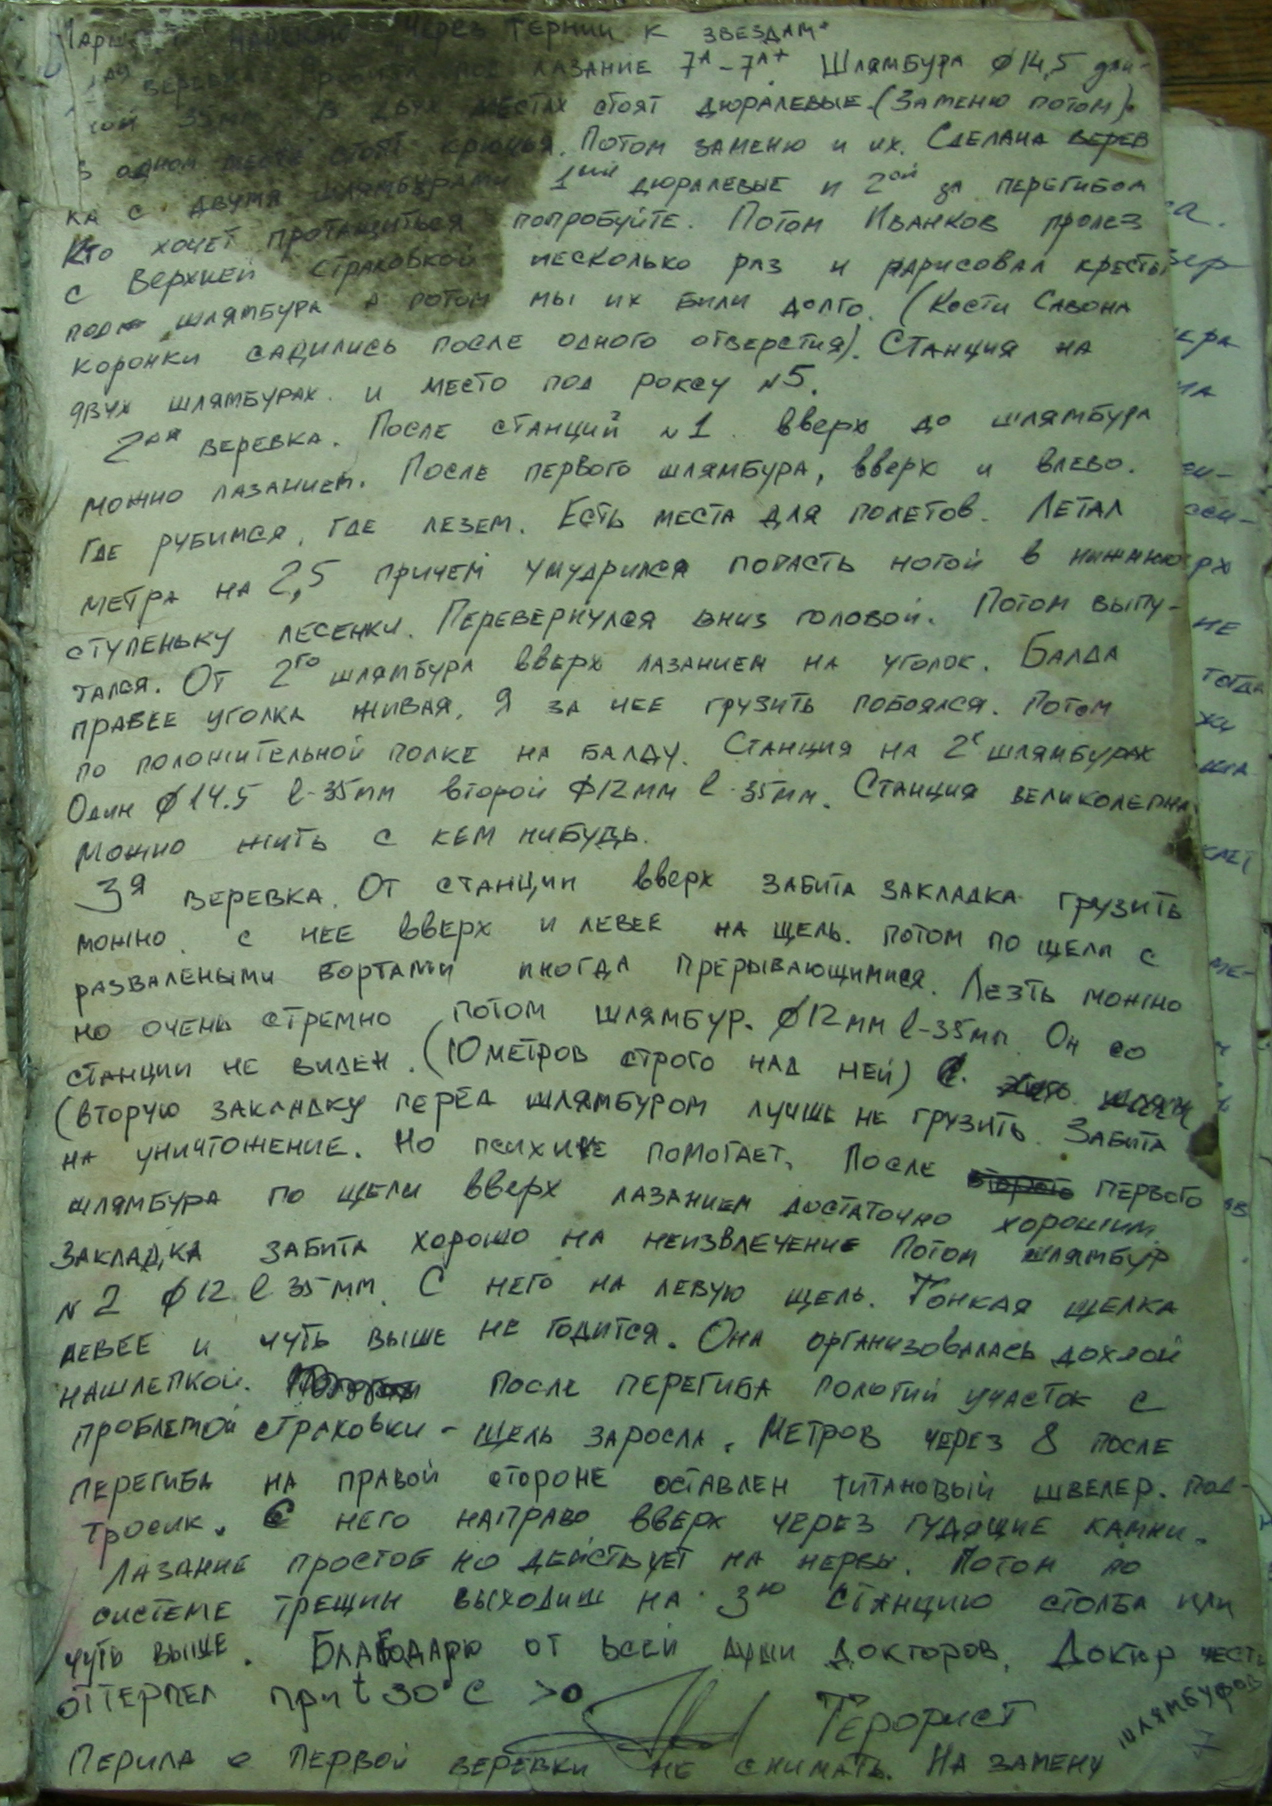 "Через тернии к звездам"
1ая веревка. лазание 7А-7А+. Шлямбура ø14,5 дли-
ной 35 В двух местах стоят дюралевые. (Заменю потом).
В одном месте стоят крючья. Потом заменю и их. Сделана верев
ка с двумя шлямбурами 1ый дюралевые и 2ой за перегибом
Кто хочет протащиться попробуйте. Потом Иванков пролез
с верхней страховкой несколько раз и нарисовал кресты
под шлямбура а потом мы их били долго. (Кости Савона
коронки садились после одного отверстия). Станция на
двух шлямбурах и место под роксу №5.
2ая веревка. После станций №1 вверх до шлямбура
можно лазанием. После первого шлямбура, вверх и влево.
Где рубимся, где лезем. Есть места для полетов. Летал
метра на 2,5 причем умудрился попасть ногой в нижнюю
ступеньку лесенки. Перевернулся вниз головой. Потом выпу-
тался. От 2го шлямбура вверх лазанием на уголок. Балда
правее уголка живая. Я за нее грузить побоялся. Потом
по положительной полке на балду. Станция на 2х шлямбурах
Один ø14.5 l-35мм второй ø12мм l-35мм. Станция великолепна
Можно жить с кем нибудь.
3я веревка. От станции вверх забита закладка грузить
можно. с нее вверх и левее на щель. потом по щели с
развалеными бортами иногда прерывающимися. Лезть можно
но очень стремно потом шлямбур. ø12мм l-35мм. Он со
станции не виден. (10 метров строго над ней)
(вторую закладку перед шлямбуром лучше не грузить. Забита
на уничтожение. Но психике помогает. После первого
шлямбура по щели вверх лазанием достаточно хорошим.
Закладка забита хорошо на неизвлечение Потом шлямбур
№2 ø12 l 35мм. С него на левую щель. Тонкая щелка
левее и чуть выше не годится. Она организовалась дохлой
нашлепкой. После перегиба пологий участок с
проблемой страховки - щель заросла. Метров через 8 после
перегиба на правой стороне оставлен титановый швелер. под-
тросик. С него направо вверх через гудящие камни.
Лазание простое но действует на нервы. Потом по
системе трещин выходиш на 3ю станцию столба или
чуть выше. Благодарю от всей души докторов. Доктор честь
оттерпел при t 30°C >0
Терорист
Перила с первой веревки не снимать. На замену
шлямбуров
7